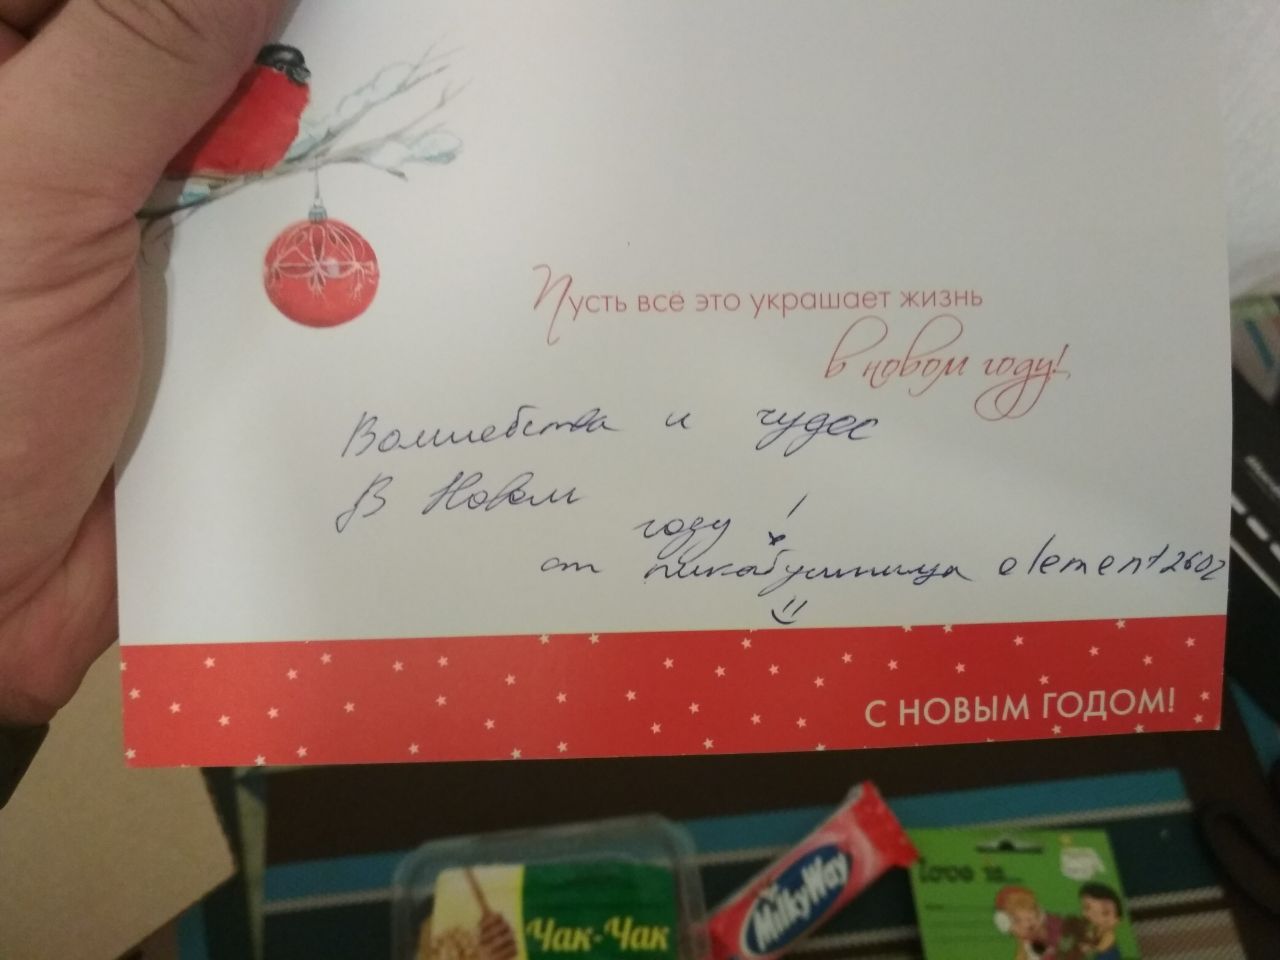 Пусть всё это украшает жизнь
в новом году!
Волшебства и чудес
В Новом
году!
от пикабушница element2602
С НОВЫМ ГОДОМ!
Чак-Чак
MilkyWay
love is...